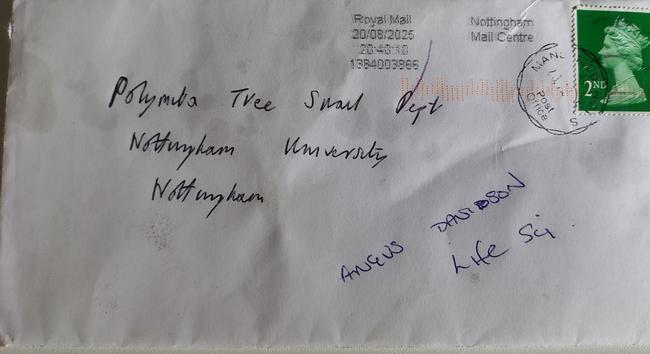 Royal Mail
20/08/2025
1384003866
Nottingham
Mail Centre
2ND
MAN
Post Office
S
Polymita Tree Snail Dept
Nottingham University
Nottingham
ANGUS DAVIDSON
Life Sci.